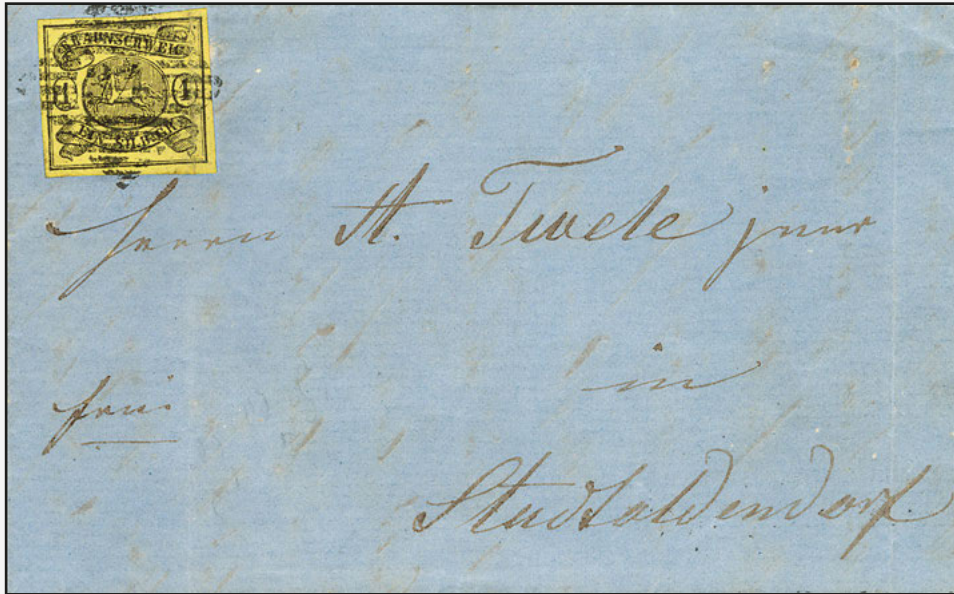 BRAUNSCHWEIG
1 1
EIN SILBERG
Herrn A. Twele junr
in
frei.
Stadtoldendorf